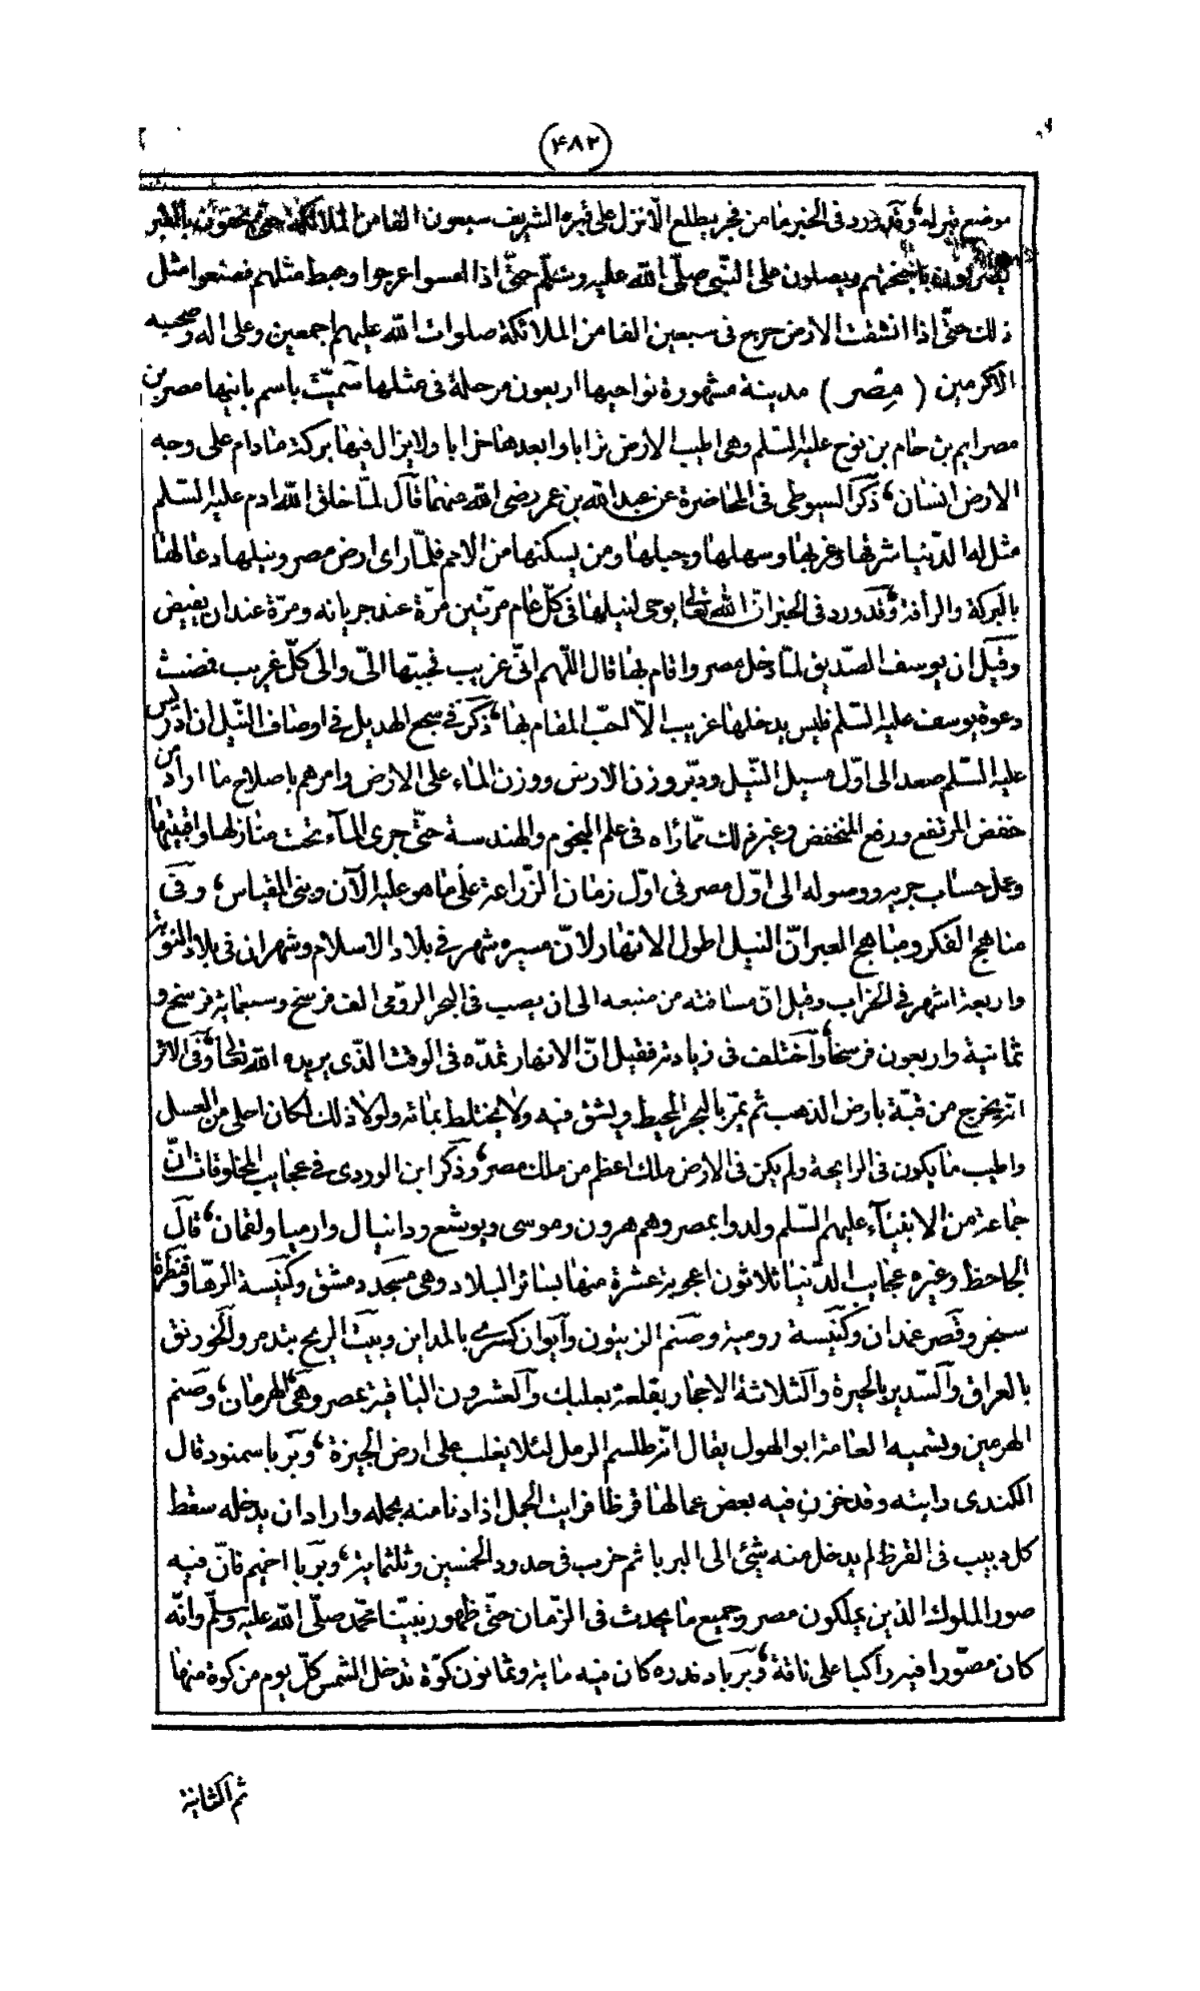 (۴۸۲)
موضع قبره وقد ورد فى الخبر ما من فجر يطلع الا نزل على قبره الشريف سبعون الفا من الملائكة حتى يحفون بالقبر
يضربون باجنحتهم ويصلون على النبى صلى الله عليه وسلم حتى اذا امسوا عرجوا وهبط مثلهم فصنعوا مثل
ذلك حتى اذا انشقت الارض خرج فى سبعين الفا من الملائكة صلوات الله عليهم اجمعين وعلى اله وصحبه
الاكرمين ( مصر ) مدينة مشهورة نواحيها اربعون مرحلة فى مثلها سميت باسم بانيها مصر بن
مصرايم بن حام بن نوح عليه السلم وهى اطيب الارض ترابا وابعدها خرابا ولا يزال فيها بركة ما دام على وجه
الارض انسان ذكر السيوطى فى المحاضرة عن عبد الله بن عمر رضى الله عنهما قال لما خلق الله ادم عليه السلم
مثل له الدنيا شرقها وغربها وسهلها وجبلها ومن يسكنها من الامم فلما راى ارض مصر ونيلها دعا لها
بالبركة والرأفة وقد ورد فى الخبر ان الله تعالى يوحى لنيلها فى كل عام مرتين مرة عند جريانه ومرة عند ان يفيض
وقيل ان يوسف الصديق لما دخل مصر واقام بها قال اللهم انى غريب فحببها الى والى كل غريب فمضت
دعوة يوسف عليه السلم فليس يدخلها غريب الا احب المقام بها ذكر فى سجع الهديل فى اوصاف النيل ان ادريس
عليه السلم صعد الى اول مسيل النيل ودبر وزن الارض ووزن الماء على الارض وامرهم باصلاح ما اراد من
خفض المرتفع ورفع المنخفض وغير ذلك مما رأه فى علم النجوم والهندسة حتى جرى الماء تحت منازلها وافنيتها
وعمل حساب جريه ووصوله الى اول مصر فى اول زمان الزراعة على ما هو عليه الآن وبنى المقياس وفى
مناهج الفكر ومباهج العبر ان النيل اطول الانهار لان مسيره شهر فى بلاد الاسلام وشهران فى بلاد النوبة
واربعة اشهر فى الخراب وقيل ان مسافته من منبعه الى ان يصب فى البحر الرومى الف فرسخ وسبعماية فرسخ و
ثمانية واربعون فرسخا واختلف فى زيادته فقيل ان الانهار تمده فى الوقت الذى يريده الله تعالى وفى الاثر
انه يخرج من قبة بارض الذهب ثم يمر بالبحر المحيط ويشق فيه ولا يختلط بمائه ولولا ذلك لكان احلى من العسل
واطيب ما يكون فى الرايحة ولم يكن فى الارض ملك اعظم من ملك مصر وذكر ابن الوردى فى عجايب المخلوقات ان
جماعة من الانبياء عليهم السلم ولدوا بمصر وهم هرون وموسى ويوشع ودانيال وارميا ولقمان قال
الجاحظ وغيره عجايب الدنيا ثلاثون اعجوبة عشرة منها بسائر البلاد وهى مسجد دمشق وكنيسة الرها وقنطرة
سنجر وقصر غمدان وكنيسة رومية وصنم الزيتون وايوان كسرى بالمداين وبيت الريح بتدمر والخورنق
بالعراق والسدير بالحيرة والثلاثة الاحجار بقلعة بعلبك والعشرون الباقية بمصر وهى الهرمان وصنم
الهرمين وتسميه العامة ابو الهول يقال انه طلسم الرمل لئلا يغلب على ارض الجيزة وبربا سمنود قال
الكندى رايته وقد خزن فيه بعض عمالها قرظا فرايت الجمل اذا دنا منه بحمله واراد ان يدخله سقط
كل دبيب فى القرظ لم يدخل منه شئ الى البربا ثم خرب فى حدود الخمسين وثلثماية وبربا اخميم فان فيه
صور الملوك الذين يملكون مصر وجميع ما يحدث فى الزمان حتى ظهور نبينا محمد صلى الله عليه وسلم وانه
كان مصورا فيه راكبا على ناقة وبربا دندره كان فيه ماية وثمانون كوة تدخل الشمس كل يوم من كوة منها
ثم الثانية